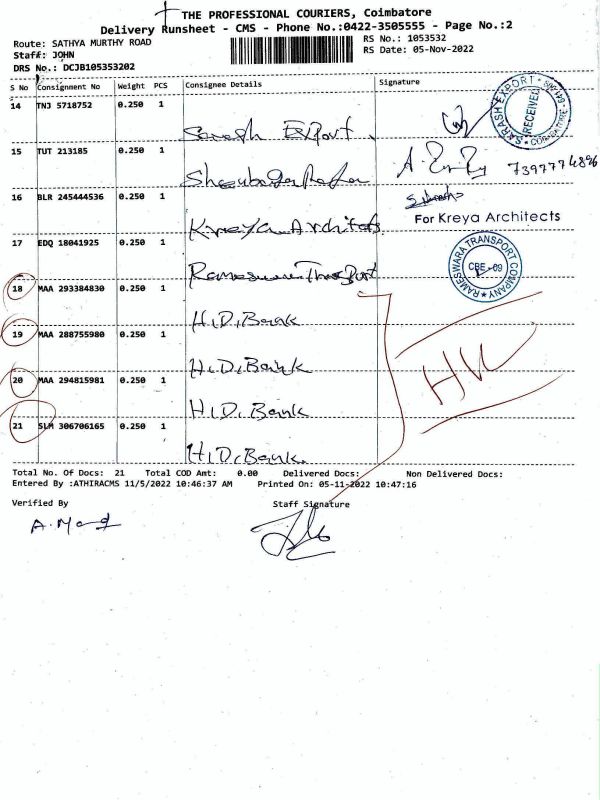 THE PROFESSIONAL COURIERS, Coimbatore
Delivery Runsheet - CMS - Phone No.:0422-3505555 - Page No.:2
Route: SATHYA MURTHY ROAD
RS No.: 1053532
Staff: JOHN
RS Date: 05-Nov-2022
DRS No.: DCJB105353202
S No Consignment No Weight PCS Consignee Details Signature
14 TNJ 5718752 0.250 1
Sarash Export
SARASH EXPORT COIMBATORE - 641 005
RECEIVED
15 TUT 213185 0.250 1
7397774896
16 BLR 245444536 0.250 1
Kreya Architets
For Kreya Architects
17 EDQ 18041925 0.250 1
Rameswara Transport
RAMESWARA TRANSPORT COMPANY
CBE - 09
18 MAA 293384830 0.250 1
H.D. Bank
19 MAA 288755980 0.250 1
H.D. Bank
20 MAA 294815981 0.250 1
H.D. Bank
21 SLM 306706165 0.250 1
H.D. Bank
Total No. Of Docs: 21 Total COD Amt: 0.00 Delivered Docs: Non Delivered Docs:
Entered By :ATHIRACMS 11/5/2022 10:46:37 AM Printed On: 05-11-2022 10:47:16
Verified By Staff Signature